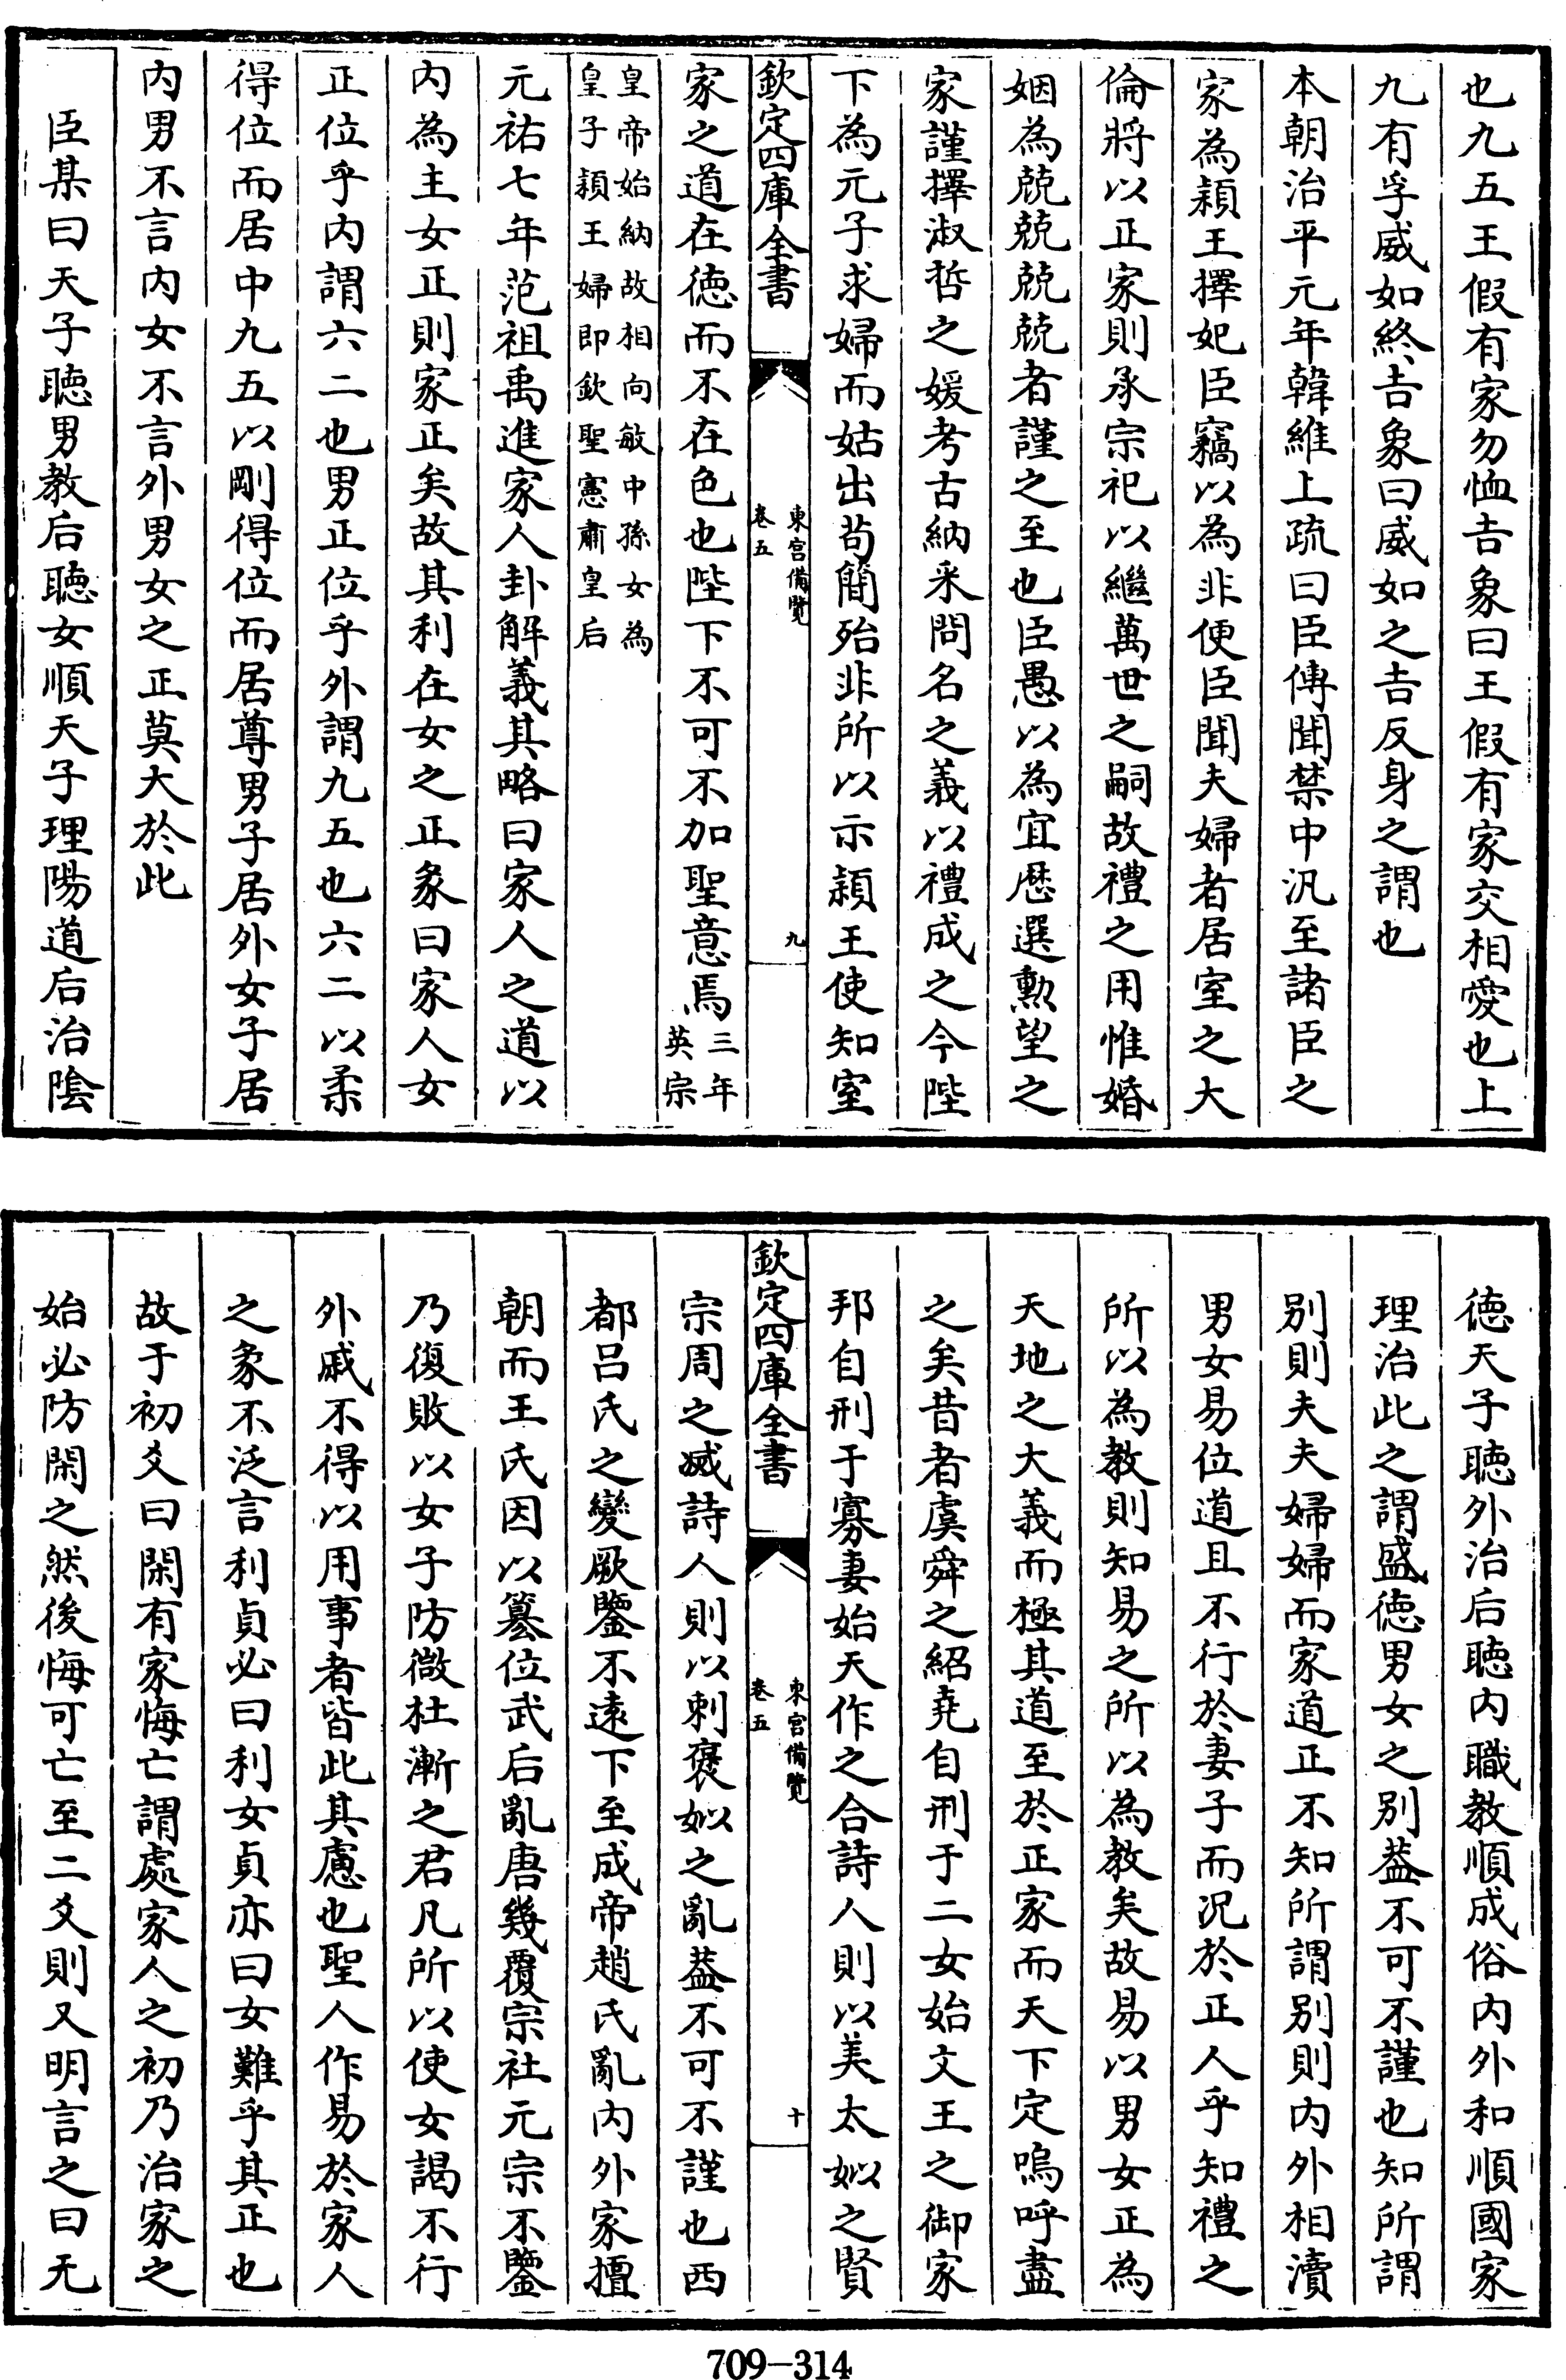 也九五王假有家勿恤吉象曰王假有家交相愛也上
九有孚威如終吉象曰威如之吉反身之謂也
本朝治平元年韓維上疏曰臣傳聞禁中汎至諸臣之
家為潁王擇妃臣竊以為非便臣聞夫婦者居室之大
倫將以正家則承宗祀以繼萬世之嗣故禮之用惟婚
姻為兢兢兢者謹之至也臣愚以為宜厯選勲望之
家謹擇淑哲之媛考古納采問名之義以禮成之今陛
下為元子求婦而姑出苟簡殆非所以示潁王使知室
欽定四庫全書
東宮備覽
卷五
九
家之道在徳而不在色也陛下不可不加聖意焉三年英宗
皇帝始納故相向敏中孫女為
皇子潁王婦即欽聖憲肅皇后
元祐七年范祖禹進家人卦解義其略曰家人之道以
内為主女正則家正矣故其利在女之正彖曰家人女
正位乎内謂六二也男正位乎外謂九五也六二以柔
得位而居中九五以剛得位而居尊男子居外女子居
内男不言内女不言外男女之正莫大於此
臣某曰天子聴男教后聴女順天子理陽道后治隂
徳天子聴外治后聴内職教順成俗内外和順國家
理治此之謂盛徳男女之别葢不可不謹也知所謂
别則夫夫婦婦而家道正不知所謂别則内外相瀆
男女易位道且不行於妻子而况於正人乎知禮之
所以為教則知易之所以為教矣故易以男女正為
天地之大義而極其道至於正家而天下定嗚呼盡
之矣昔者虞舜之紹堯自刑于二女始文王之御家
邦自刑于寡妻始天作之合詩人則以美太姒之賢
欽定四庫全書
東宮備覽
卷五
十
宗周之烕詩人則以刺褒姒之亂葢不可不謹也西
都吕氏之變厥鑒不逺下至成帝趙氏亂内外家擅
朝而王氏因以簒位武后亂唐幾覆宗社元宗不鑒
乃復敗以女子防微杜漸之君凡所以使女謁不行
外戚不得以用事者皆此其慮也聖人作易於家人
之彖不泛言利貞必曰利女貞亦曰女難乎其正也
故于初爻曰閑有家悔亡謂處家人之初乃治家之
始必防閑之然後悔可亡至二爻則又明言之曰无
709-314